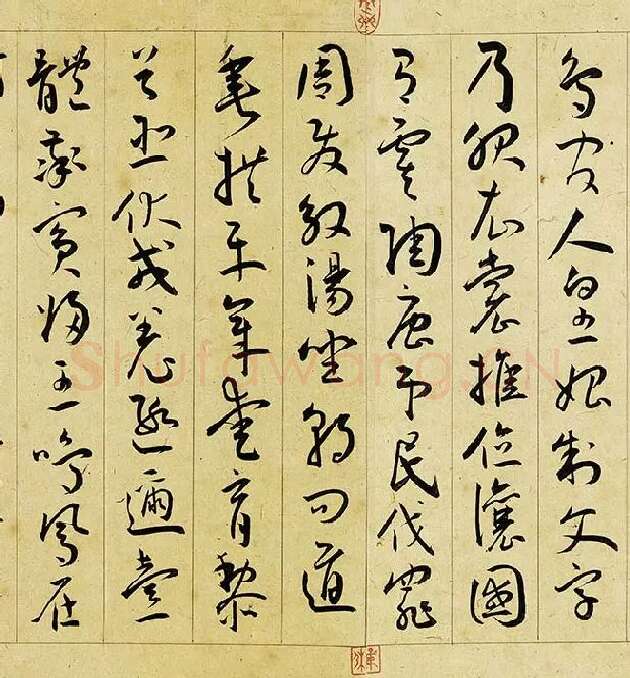 鳥官人皇始制文字
乃服衣裳推位讓國
有虞陶唐弔民伐罪
周發殷湯坐朝問道
垂拱平章愛育黎
首臣伏戎羌遐邇壹
體率賓歸王鳴鳳在
Shufawang.CN